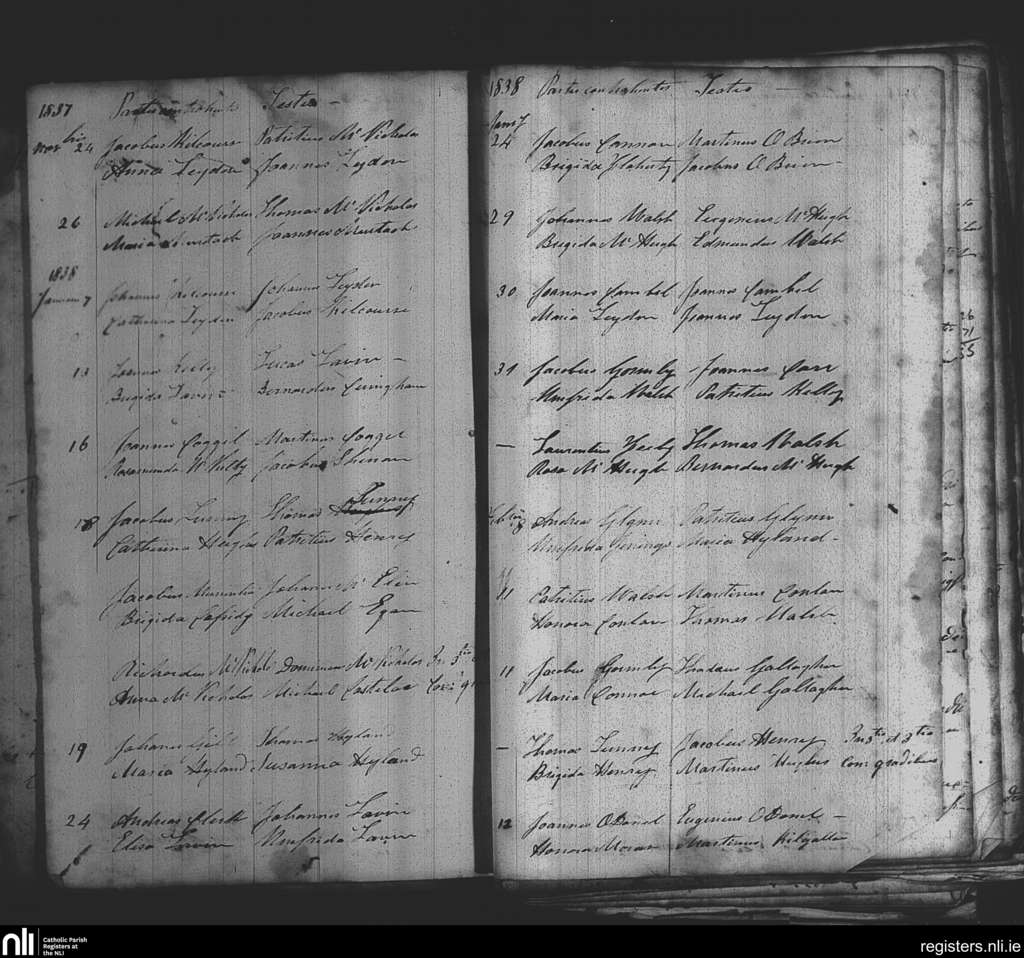 1837 Partes contrahentes Testes —
Novbris 24 Jacobus Kilcourse Patritius Mc Nichola
Anna Leydon Joannes Leydon
26 Michael McNicholas Thomas Mc Nicholas
Maria Joannes
1838
January 7 Johannes Kilcourse Johannes Leyden
Catharina Leyden Jacobus Kilcourse
13 Joannes Kelly Lucas Lavin —
Brigida Lavin Bernardus Cuningham
16 Joannes Coggil Martinus Cogger
Rosamunda Jacobus
18 Jacobus Thomas Tunney
Catherina Hughs Patritius Henry
Jacobus Johannes
Brigida Cassidy Michael Egan
Richardus McNichol Dominicus Mc Nicholas In 3tio
Anna Mc Nicholas Michael Costeloe Con:
19 Johannes Gill Thomas Hyland
Maria Hyland Susanna Hyland
24 Andreas Clerk Johannes Lavin
Elisa Lavin Winfrida Lavin
1838 Partes contrahentes Testes —
Jany
24 Jacobus Cannon Martinus O Brien
Brigida Flaherty Jacobus O Brien —
29 Johannes Walsh Eugenius McHugh
Brigida Mc Hugh Edmundus Walsh
30 Joannes Cambel Joannes Cambel
Maria Leydon Joannes Leydon
31 Jacobus Gormly Joannes Carr
Winfrida Walsh Patritius Kelly
— Laurentius Thomas Walsh
Rosa Mc Hugh Bernardus Mc Hugh
Andreas Glynn Patritius Glynn
Winfrida Jenings Maria Hyland —
11 Patritius Walsh Martinus Conlan
Honora Conlan Thomas Walsh
11 Jacobus Gormly Thadaus Gallagher
Maria Connor Michael Gallagher
— Thomas Tunney Jacobus Henry In 3tio et 3tio
Brigida Henry Martinus Hughes Con: gradibus
12 Joannes O Donel Eugenius O Donel —
Honora Moran Martinus Kilgallen
nli Catholic Parish
Registers at
the NLI
registers.nli.ie